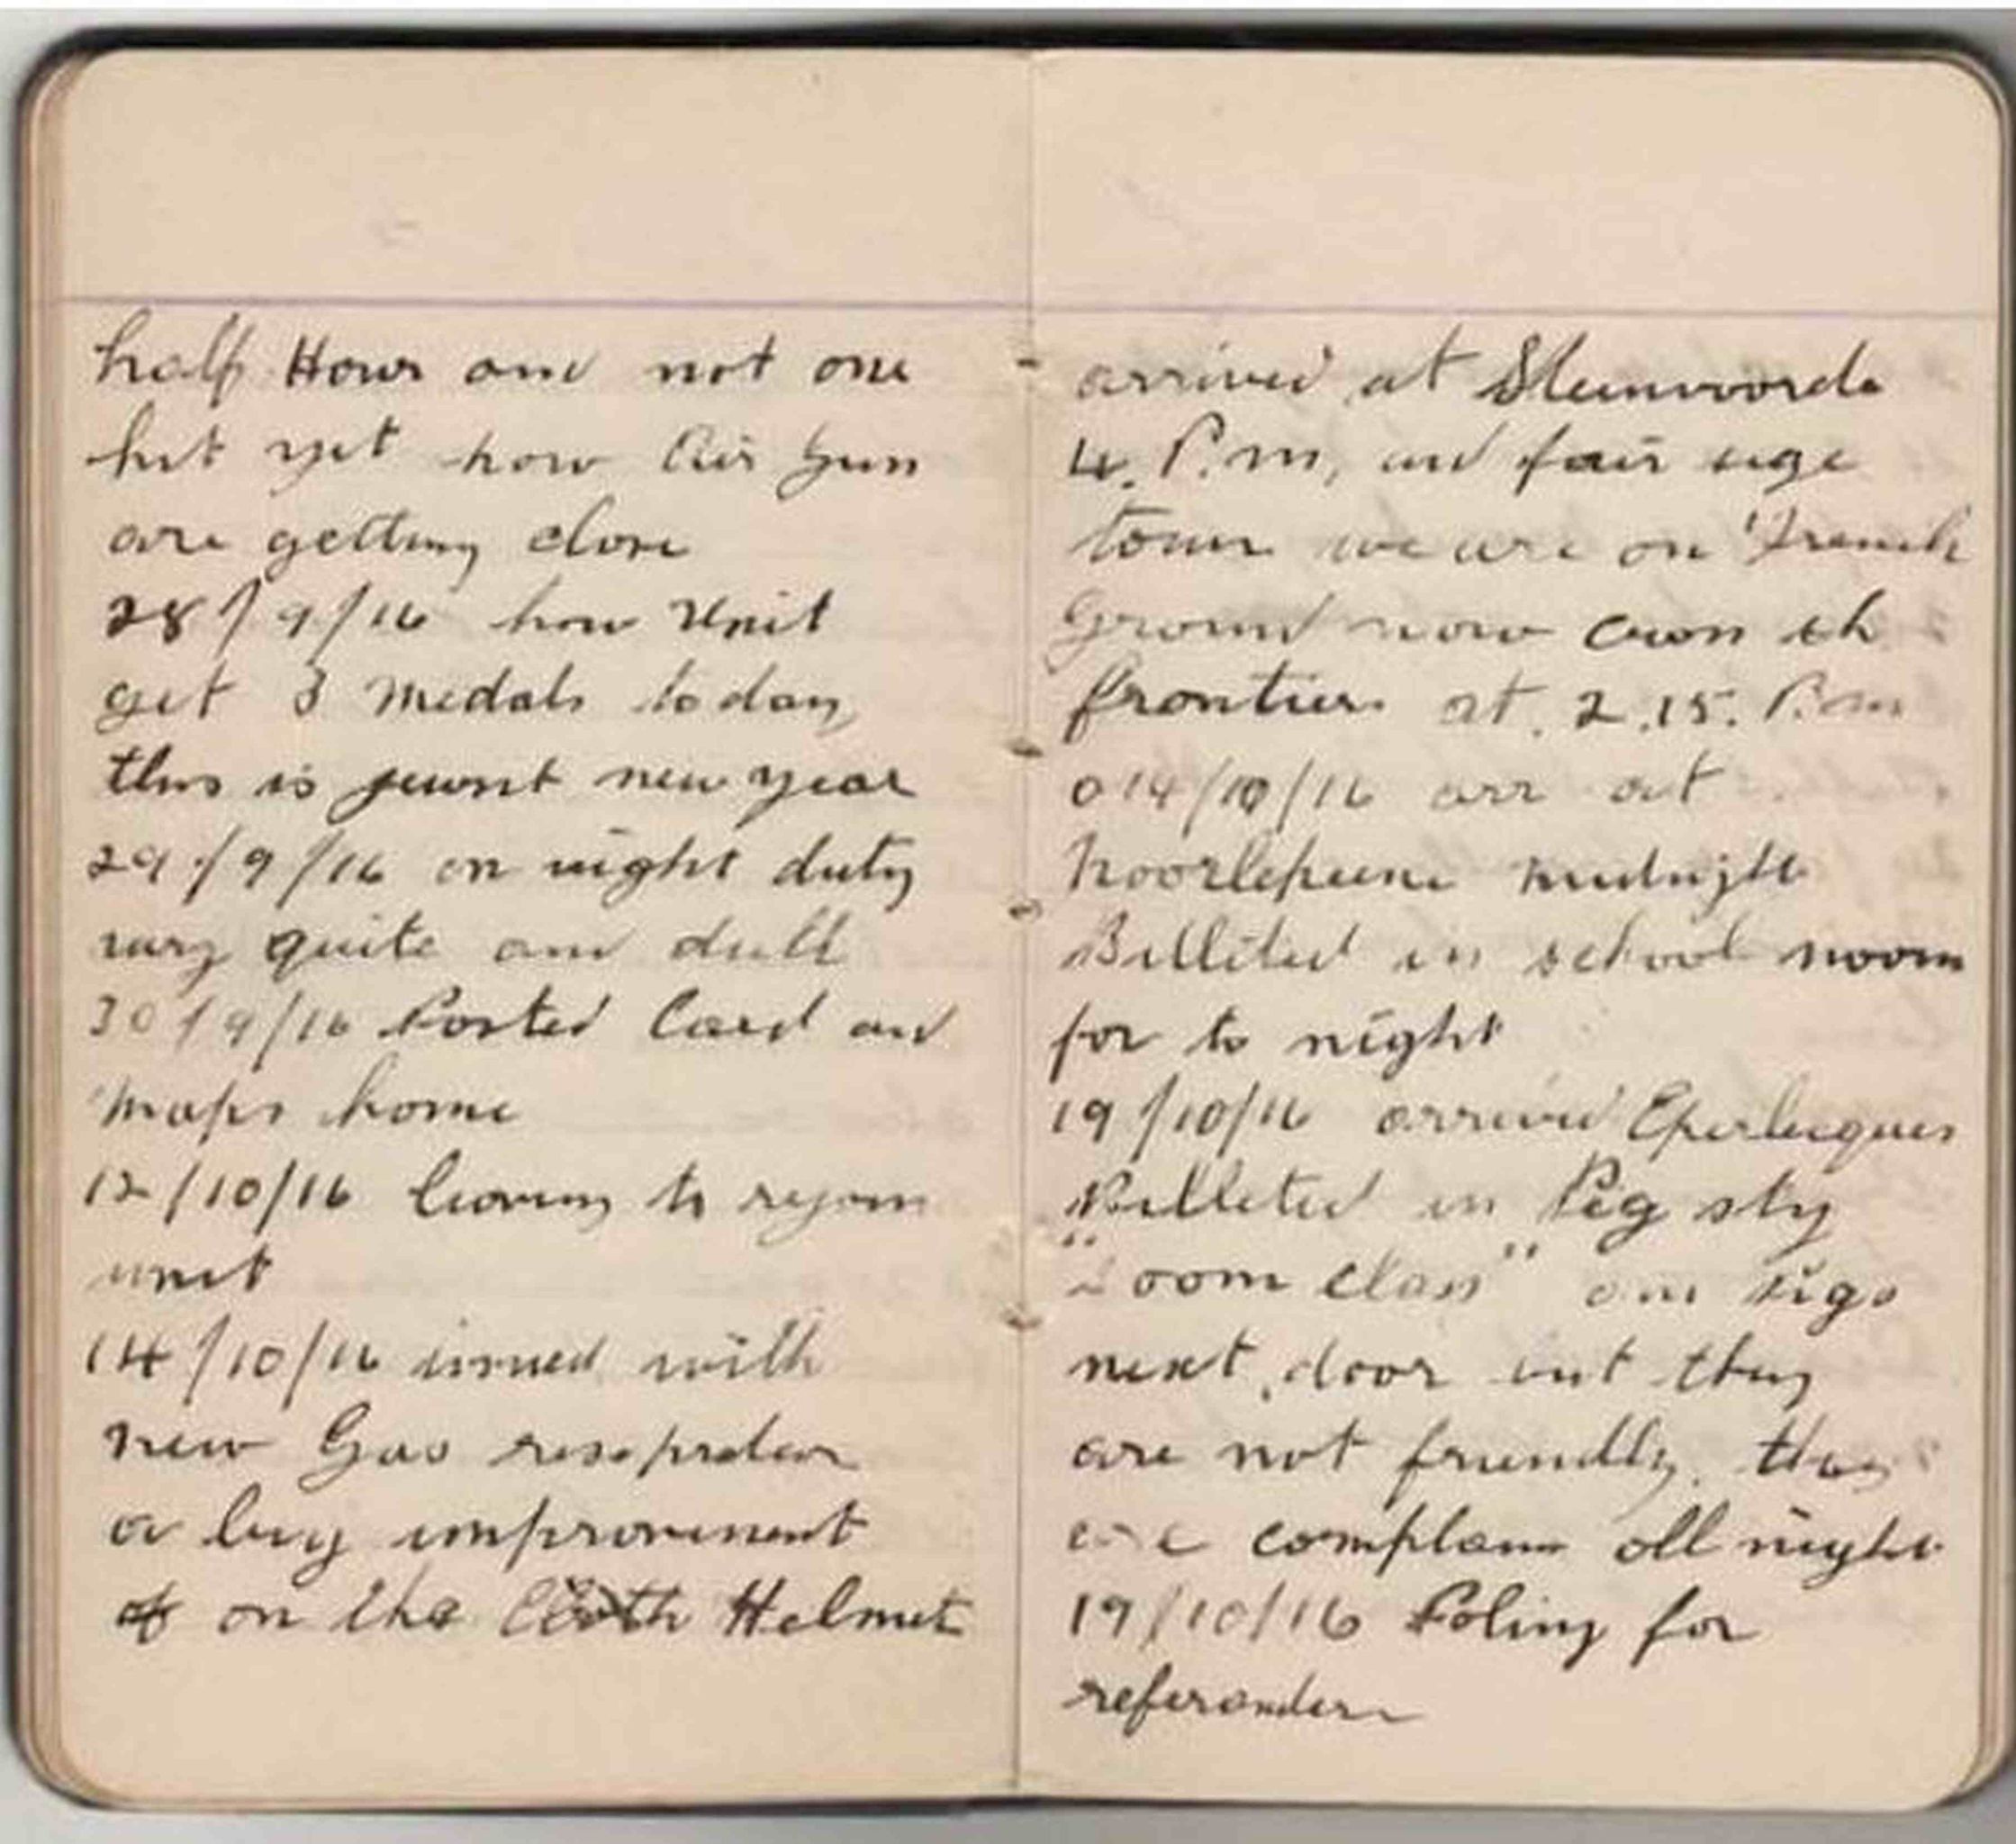 half Hour and not one
hit yet how Air Gun
are getting close
28/9/16 how Unit
get 3 Medals to day
this is jewish new year
29/9/16 on night duty
vary quite and dull
30/9/16 Posted Card and
maps home
12/10/16 leaving to rejoin
unit
14/10/16 issued with
new Gas
a big improvement
on the Cloth Helmet
arrived at Steenvoorde
4. P.m, and fair size
town we are on French
Ground now cross th
frontier at. 2.15. P.m
14/10/16 arr at
Noorlepeene midnight
Billited in school room
for to night
19/10/16 arrived Eperlecques
Billeted in Pig sty
oom class"
next door but they
are not friendly. they
are complain all night
19/10/16 Poling for
referandem